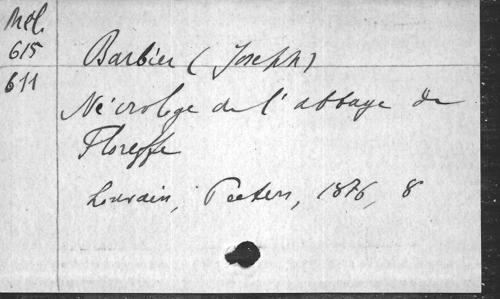 Mél.
615
611
Barbier (Joseph)
Nécrologe de l'abbaye de
Floreffe
Louvain, Peeters, 1876, 8